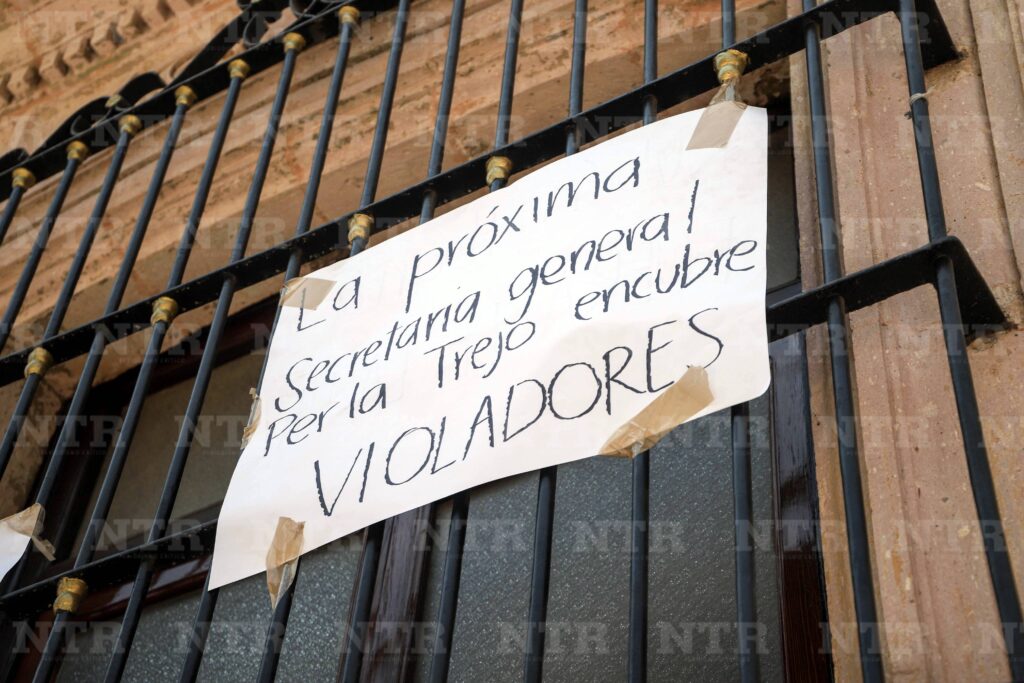 La próxima
Secretaria general
Perla Trejo encubre
VIOLADORES
NTR